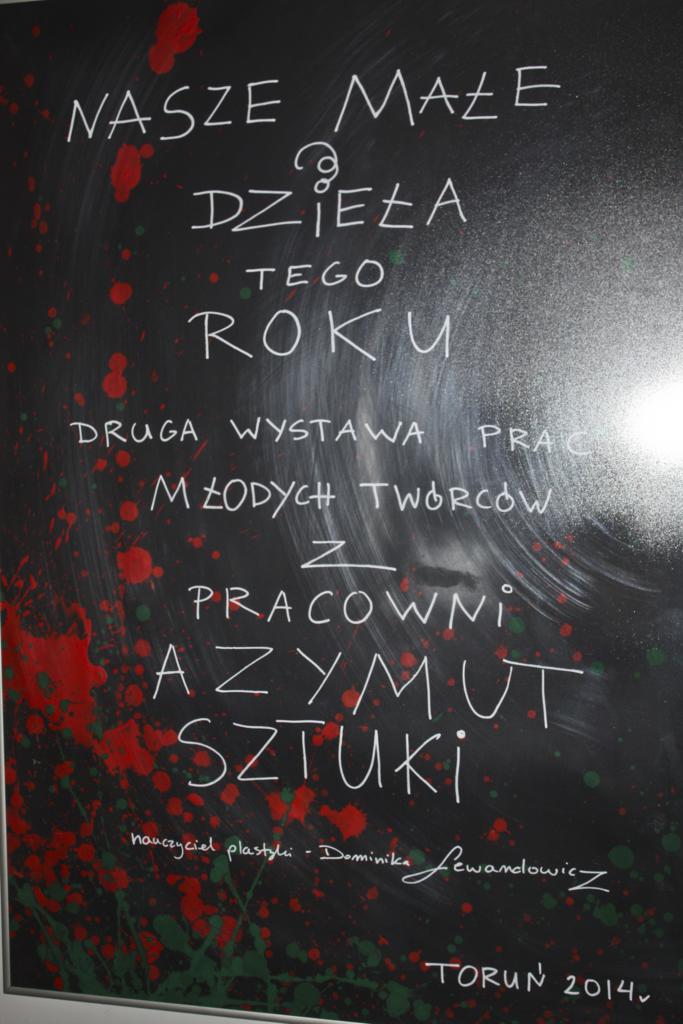 NASZE MAŁE
DZIEŁA
TEGO
ROKU
DRUGA WYSTAWA PRAC
MŁODYCH TWÓRCÓW
Z
PRACOWNI
AZYMUT
SZTUKI
nauczyciel plastyki - Dominika Lewandowicz
TORUŃ 2014r